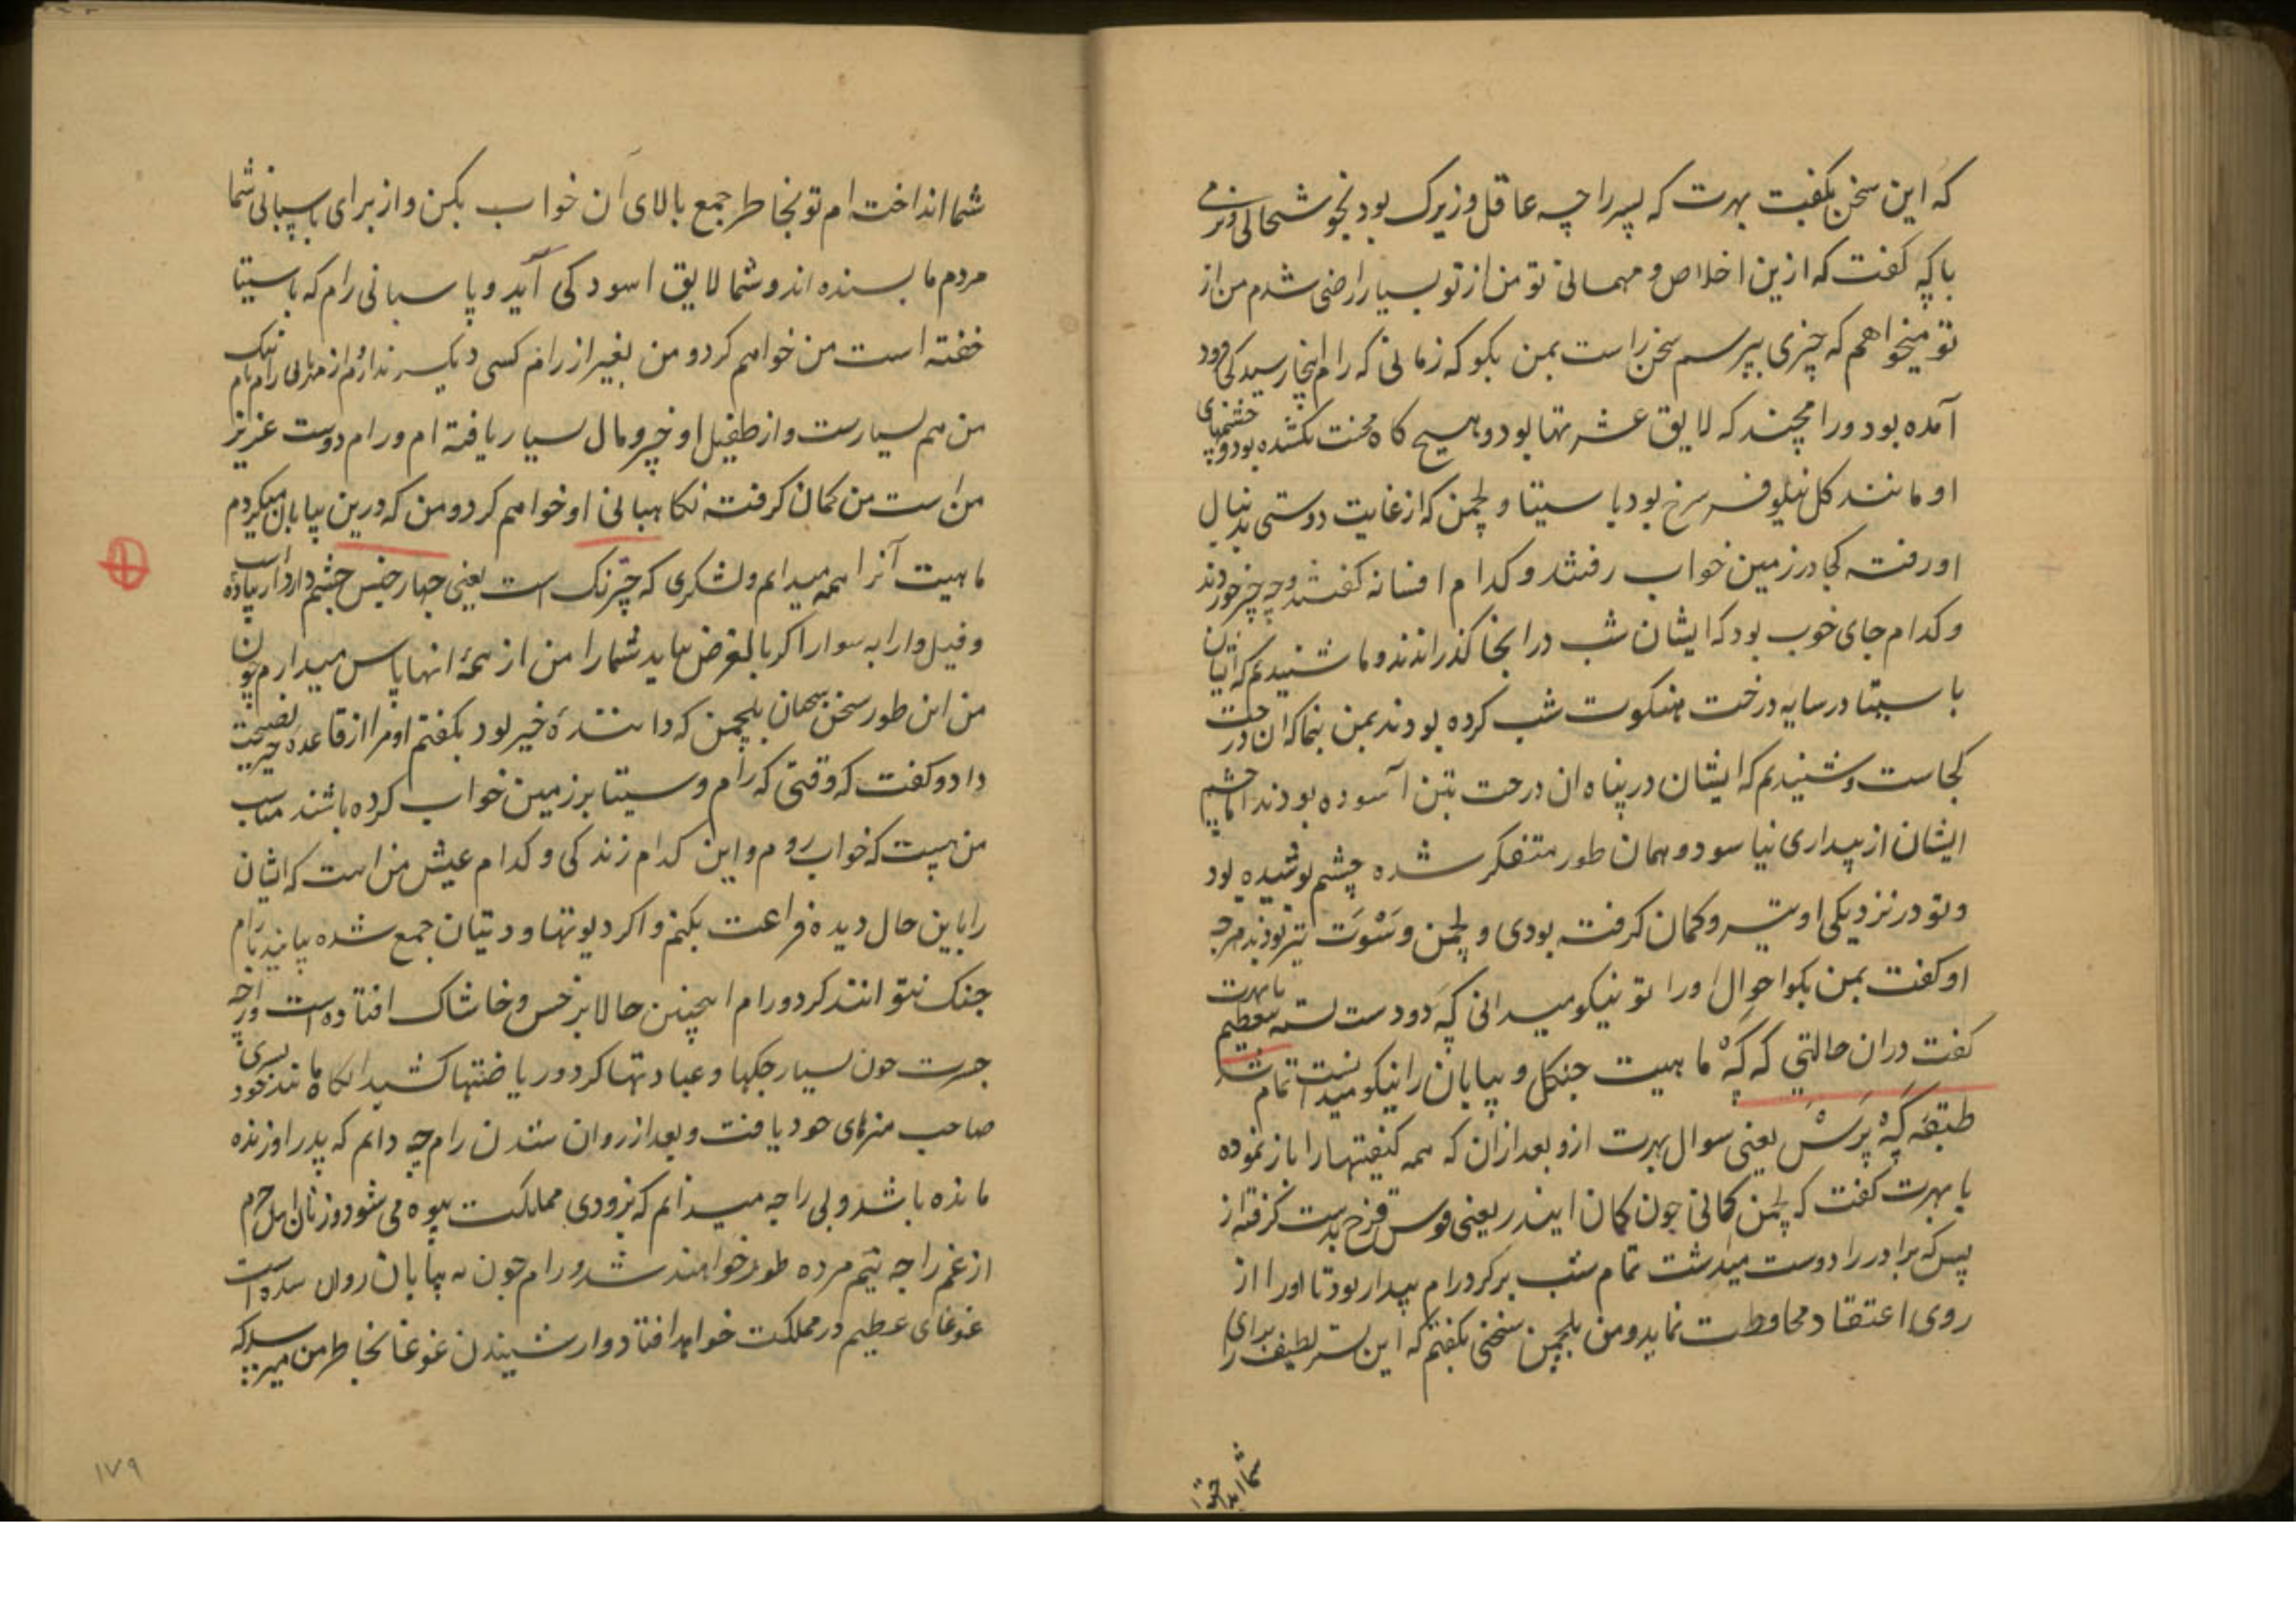 که این سخن بگفت بهرت که پسر راجه عاقل و زیرک بود بخوشحالی و نرمی
باکپه گفت که ازین اخلاص و مهمانی تو من از تو بسیار راضی شدم من از
تو میخواهم که چیزی بپرسم سخن راست بمن بکو که زمانی که رام اینجا رسید کی فرود
آمده بود و رامچند که لایق عشرتها بود و هیچ کاه محنت نکشده بود و چشمهای
او مانند کل نیلوفر سرخ بود با سیتا و لچمن که از غایت دوستی بدنبال
او رفته کجا در زمین خواب رفتند و کدام افسانه کفتند و چه چیز خوردند
و کدام جای خوب بود که ایشان شب در انجا کذراندند و ما شنیدیم که ایشان
با سیتا در سایه درخت هنکوت شب کرده بودند بمن بنما که ان درخت
کجاست و شنیدیم که ایشان در پناه ان درخت بتن آسوده بودند اما چشم
ایشان از بیداری نیاسود و همان طور متفکر شده چشم پوشیده بود
و تو در نزدیکی او تیر و کمان کرفته بودی و لچمن و سَنْوَت نیز بودند هرچه
او کفت بمن بکو احوال او را تو نیکو میدانی کَپَه دو دست بسته با بهرت تعظیم
کفت در ان حالتی که کَپَهْ ماهیت جنکل و بیابان را نیکو میدانست تمام شد
طبقهَ کَپَهْ پَرَسْنَ یعنی سوال بهرت ازو بعد ازان که همه کیفیتها را باز نموده
با بهرت کفت که لچمن کمانی چون کمان ایندر یعنی قوس قزح بدست کرفته از
پس که برادر را دوست میداشت تمام شب بر کرد رام بیدار بود تا او را از
روی اعتقاد محافظت نماید و من بلچمن سخنی بکفتم که این بستر لطیف را برای
شما انداخته ا
شما انداخته ام تو بخاطر جمع بالای آن خواب بکن و از برای پاسبانی شما
مردم ما بسنده اند و شما لایق اسودکی آید و پاسبانی رام که با سیتا
خفته است من خواهم کرد و من بغیر از رام کسی دیکر ندارم از مهربانی رام نام نیک
من هم بسیارست و از طفیل او خیر و مال بسیار یافته ام و رام دوست عزیز
من است من کمان کرفته نکاهبانی او خواهم کرد و من که درین بیابان میکردم
ماهیت آنرا همه میدانم و لشکری که چترنک است یعنی چهار جنس چشم دارد از پیاده اسب
و فیل و ارابه سوار اکر بالغرض بیاید شما را من از همهٔ انها پاس میدارم چون
من این طور سخن بیحان بلچمن که دانندهٔ خیر بود بکفتم او مرا از قاعده خیریت نصیحت
داد و کفت که وقتی که رام و سیتا بر زمین خواب کرده باشند مناسب
من نیست که خواب روم و این کدام زندکی و کدام عیش من است که ایشان
را باین حال دیده فراغت بکنم و اکر دیوتها و دیتان جمع شده بیایند با رام
جنک نتوانند کرد و رام اینچنین حالا بر خس و خاشاک افتاده است و راجه
جسرت چون بسیار جکها و عبادتها کرد و ریاضتها کشید انکاه مانند خود پسری
صاحب هنرهای خود یافت و بعد از روان شدن رام چه دانم که پدر او زنده
مانده باشد و بی راجه میدانم که بزودی مملکت بیوه می شود و زنان اهل حرم
از غم راجه نیم مرده طور خواهند شد و رام چون به بیابان روان شده است
غوغای عظیم در مملکت خواهد افتاد و از شنیدن غوغا بخاطر من میرسد که
۱۷۹